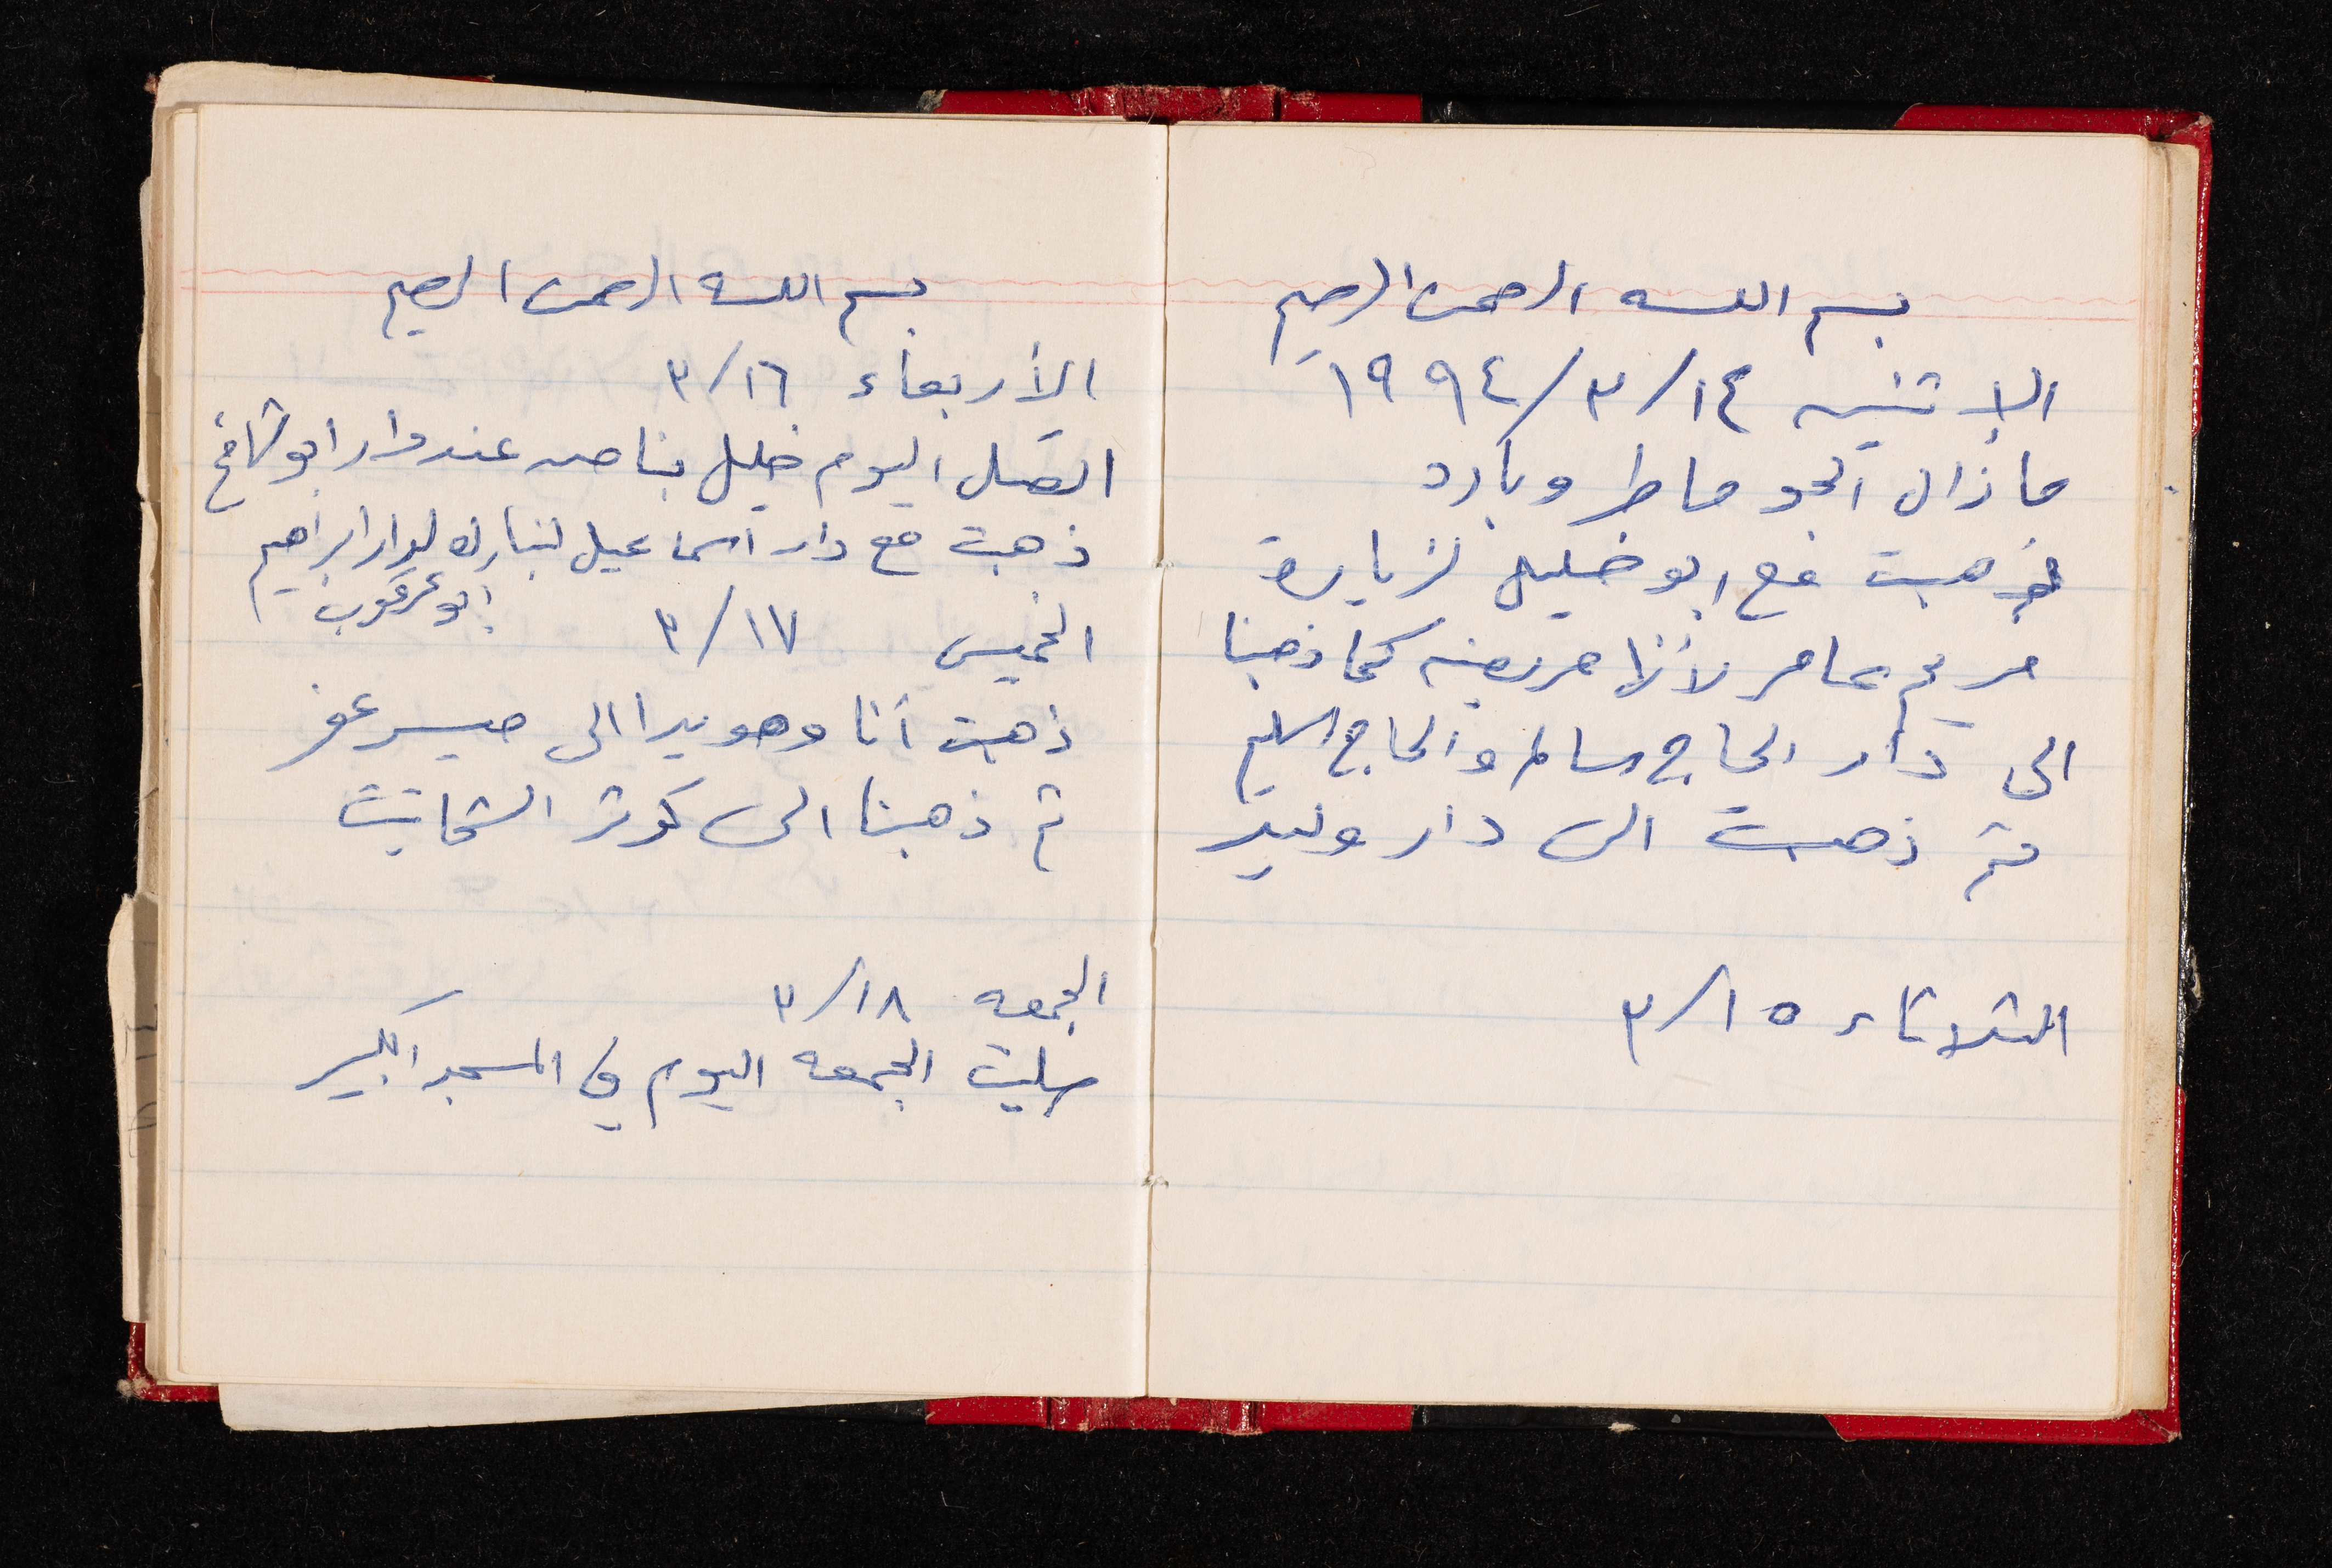 بسم الله الرحمن الرحيم
الاثنين ١٤/٣/١٩٩٤
ما زال الجو ماطر وبارد
ذهبت مع ابو خليل لزيارة
مريم عامر لأنها مريضه كما ذهبنا
الى دار الحاج سالم والحاج
ثم ذهبت الى دار وليد
الثلاثاء ٣/١٥
بسم الله الرحمن الرحيم
الأربعاء ٣/١٦
اتصل اليوم خليل بنا من عند دار ابو شامخ
ذهبت مع دار اسماعيل لنبارك لدار ابراهيم
ابو عرقوب
الخميس ٣/١٧
ذهبت أنا وهويدا الى
ثم ذهبنا الى كوثر
الجمعه ٣/١٨
صليت الجمعه اليوم في المسجد الكبير